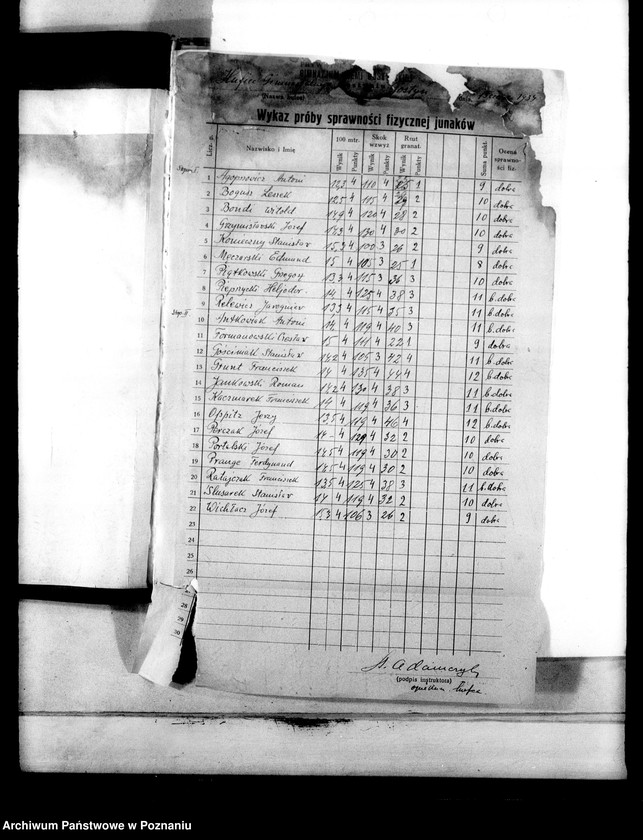 Hufiec
(Nazwa hufca)
Gostyń
Wykaz próby sprawności fizycznej junaków
Licz. Nazwisko i Imię 100 mtr. Wynik Punkty Skok wzwyż Wynik Punkty Rzut granat. Wynik Punkty Suma punkt. Ocena sprawności fiz.
1 Agopsowicz Antoni 4 110 4 1 9 dobra
2 Bogusz Leszek 4 115 4 2 10 dobra
3 Bonde Witold 14,9 4 120 4 28 2 10 dobra
4 Józef 14,3 4 130 4 30 2 10 dobra
5 Konieczny Stanisław 15,3 4 100 3 26 2 9 dobra
6 Męczarski Edmund 15 4 105 3 25 1 8 dobra
7 Piątkowski 13,3 4 115 3 36 3 10 dobra
8 Heljodor 14 4 125 4 38 3 11 b.dobra
9 Relewicz Jarogniew 13,3 4 115 4 35 3 11 b.dobra
10 Antkowiak Antoni 14 4 119 4 40 3 11 b.dobra
11 Formanowski Czesław 15 4 111 4 22 1 9 dobra
12 Gościniak Stanisław 14,2 4 105 3 42 4 11 b.dobra
13 Grunt Franciszek 14 4 135 4 44 4 12 b.dobra
14 Jankowski Roman 14,2 4 130 4 38 3 11 b.dobra
15 Kaczmarek Franciszek 14 4 119 4 36 3 11 b.dobra
16 Oppitz Jerzy 13,5 4 119 4 46 4 12 b.dobra
17 Józef 14 4 129 4 32 2 10 dobra
18 Portalski Józef 14,5 4 119 4 30 2 10 dobra
19 Prange Ferdynand 14,5 4 119 4 30 2 10 dobra
20 Ratajczak Franciszek 13,5 4 125 4 38 3 11 b.dobra
21 Ślusarek Stanisław 14 4 119 4 32 2 10 dobra
22 Wichłacz Józef 15,3 4 106 3 26 2 9 dobra
23
24
25
26
28
29
30
St. Adamczyk
(podpis instruktora)
hufca
Archiwum Państwowe w Poznaniu